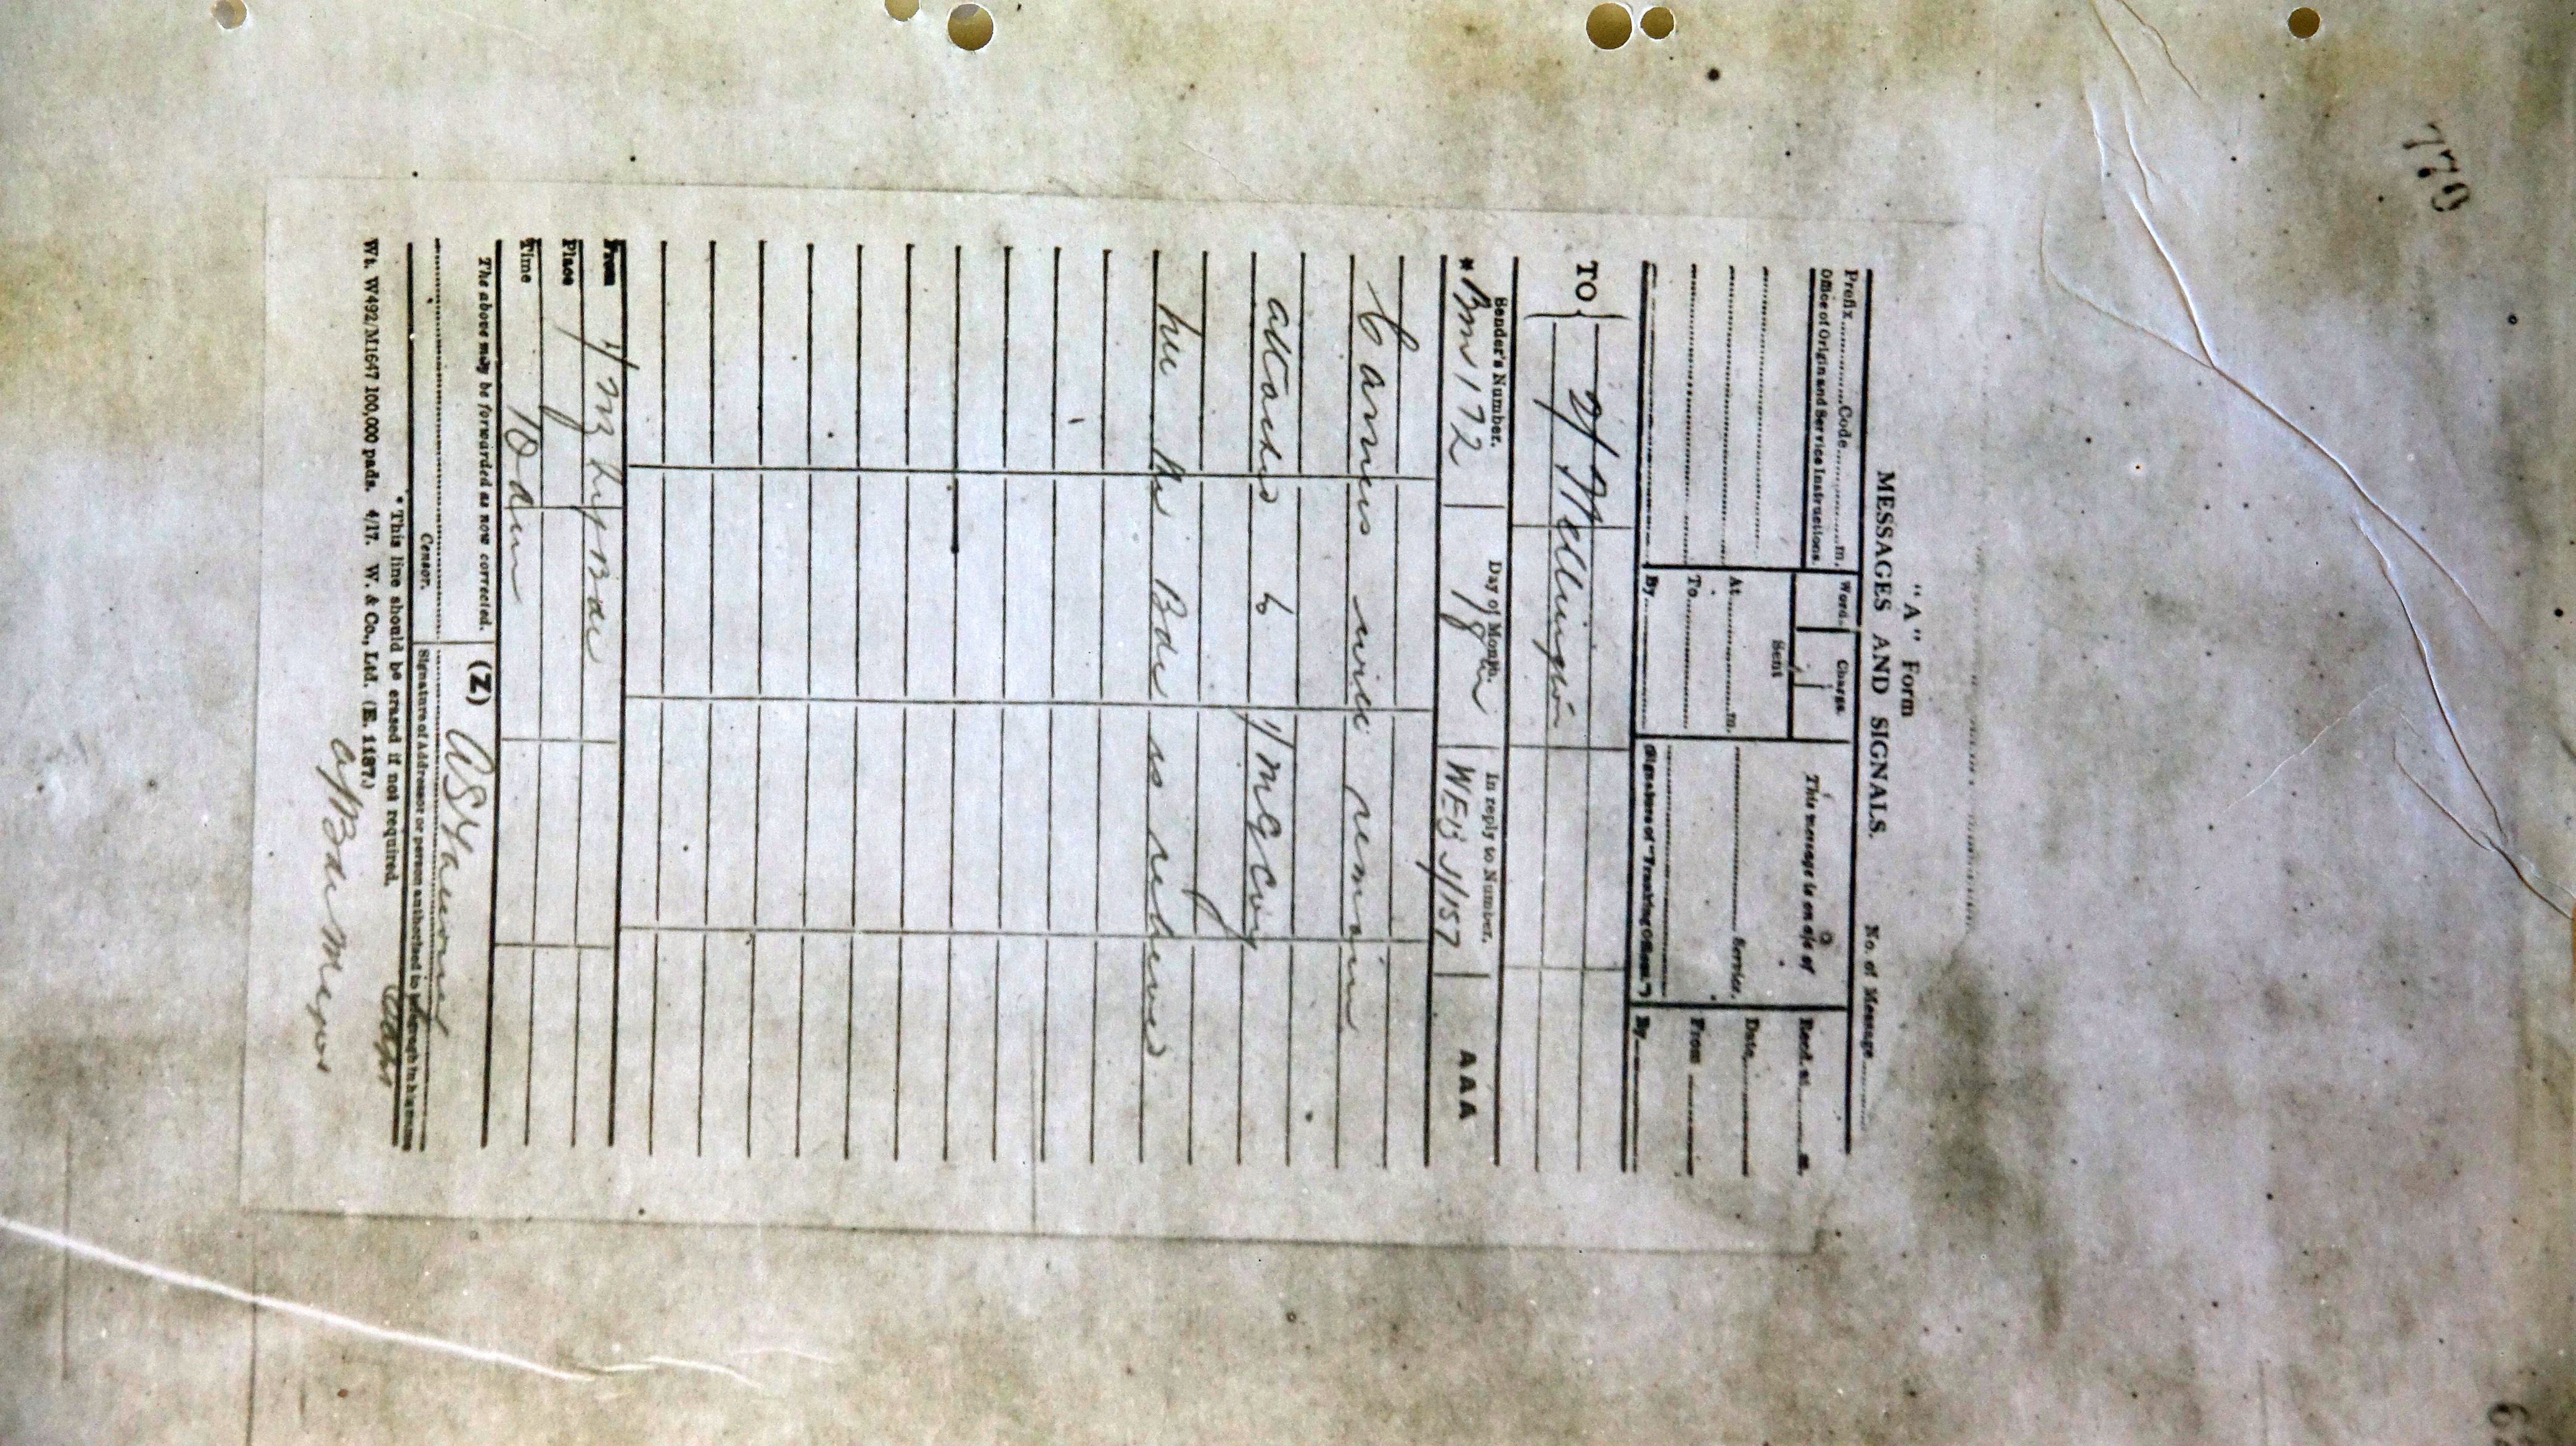 779
"A" Form
MESSAGES AND SIGNALS.
No. of Message
Prefix Code m.
Office of Origin and Service Instructions.
Words
Charge.
Sent
At m.
To
By
This message is on a/c of
Service.
(Signature of "Franking Officer.")
Recd. at m.
Date
From
By
TO 2/ Wellington
Sender's Number. Day of Month. In reply to Number. AAA
* BM 172 18th WEB 3/157
Carriers will remain
attached to 1/ MG Coy
till this Bde is relieved
From 1/ NZ Inf Bde
Place
Time 10 am
The above may be forwarded as now corrected. (Z)
Censor. Signature of Addressor or person authorised to telegraph in his name
* This line should be erased if not required. Capt
Wt. W492/M1647 100,000 pads. 4/17. W. & Co., Ltd. (E. 1187.)
a/Bde Major